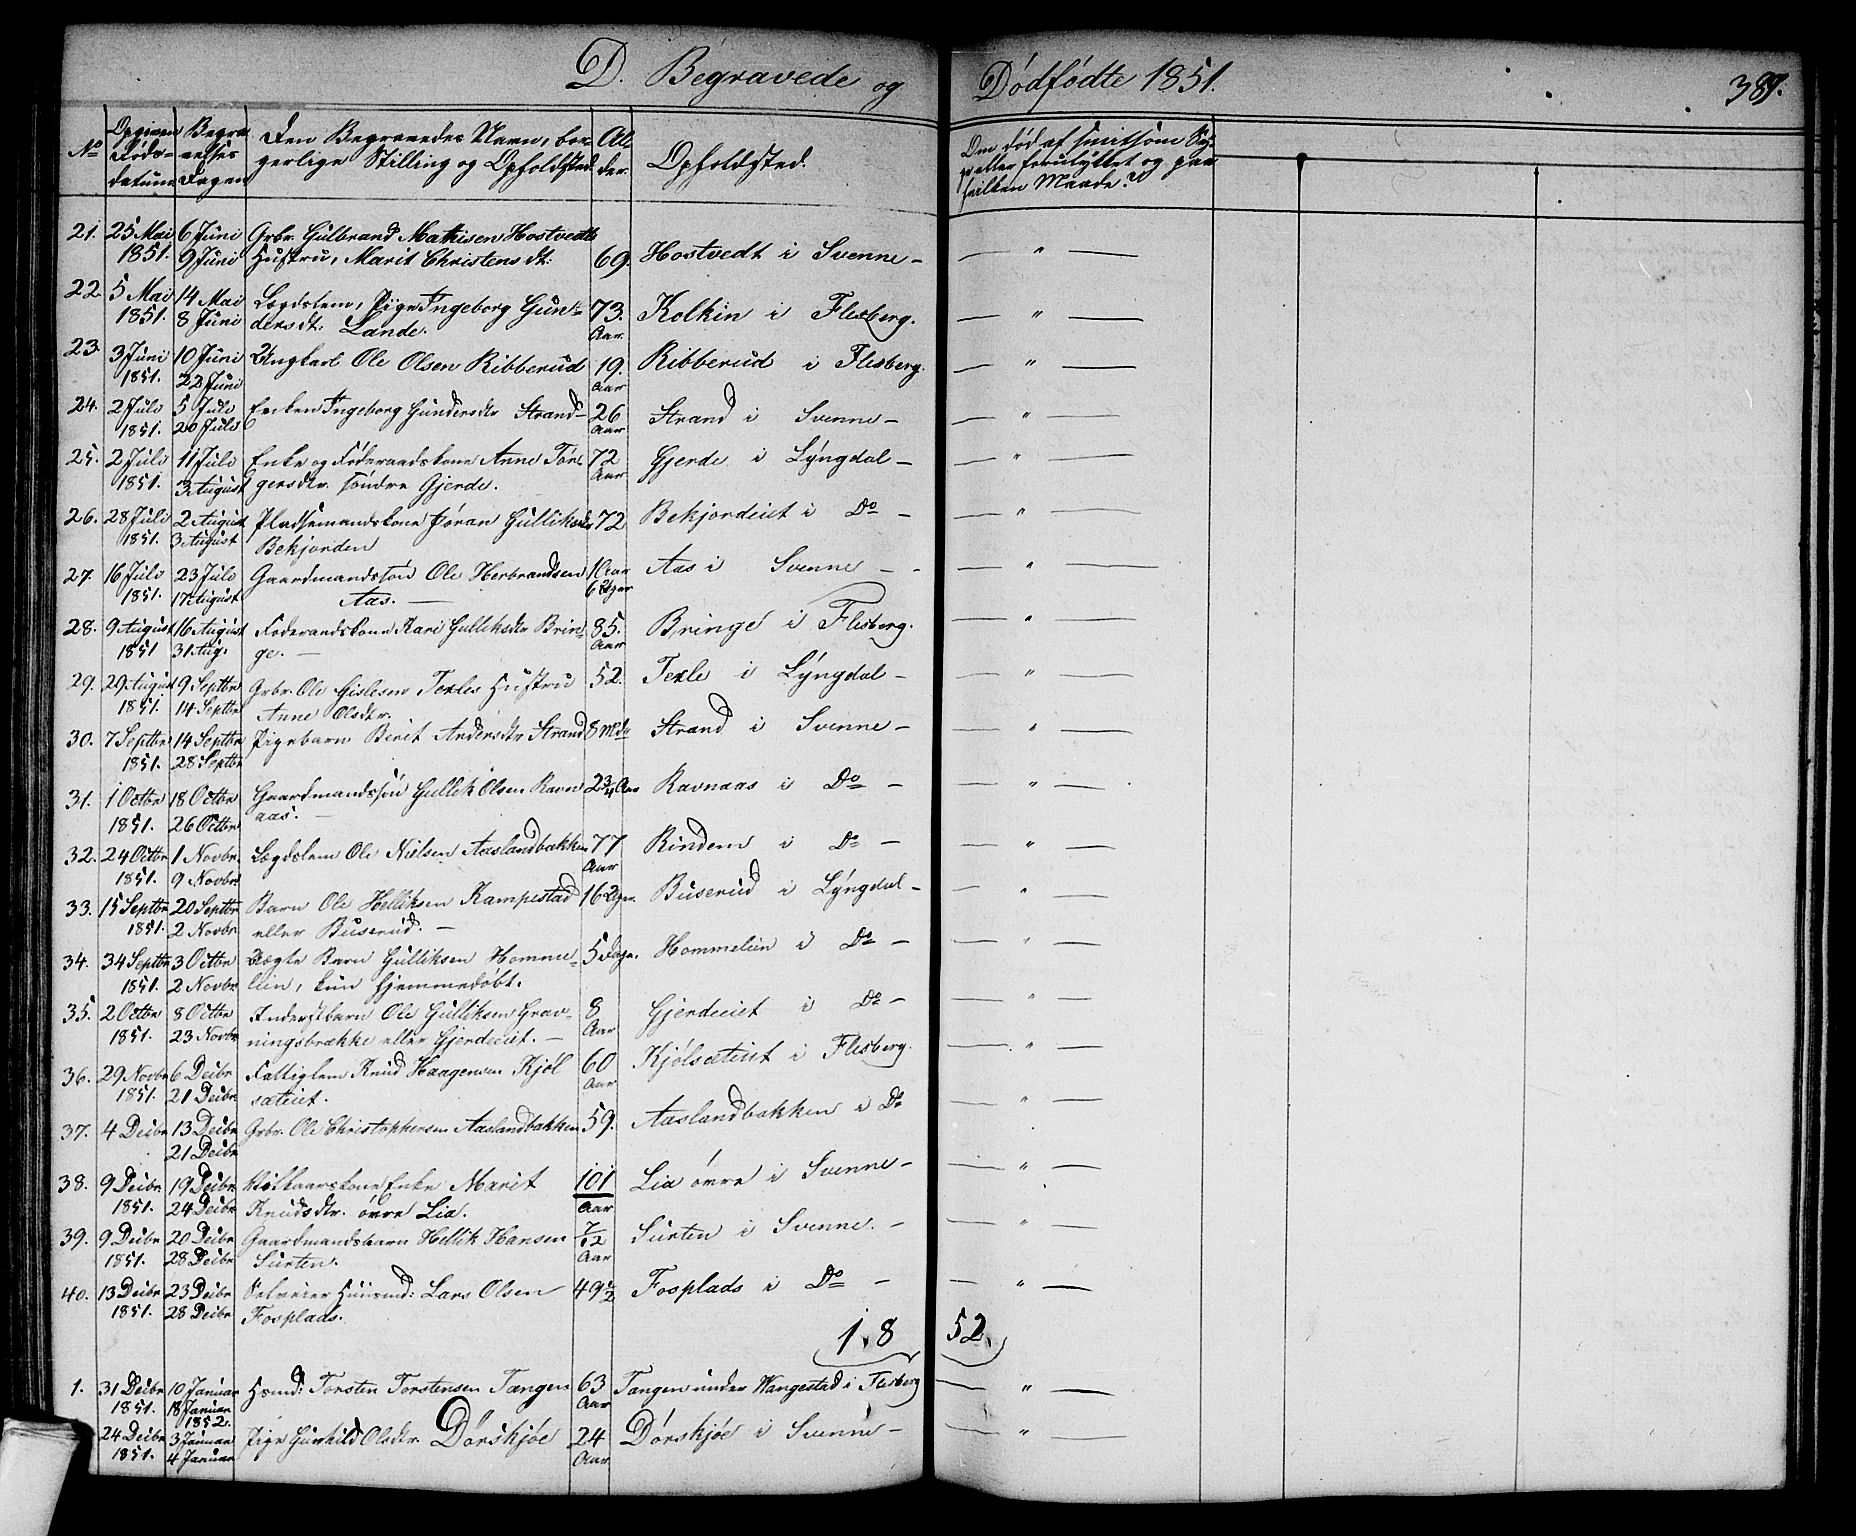 D. Begravede og Dødfødte 1851. 389.
No
Opgiven Døds-datum
Begravelses Dagen
Den Begravedes Navn, borgerlige Stilling og Opholdsted
Alder.
Opholdssted.
Om død af smitsom Syge eller forulykket og paa hvilken Maade?
21. 25 Mai 6 Juni Grbr. Gulbrand Mathisen Hostvedts
1851. 9 Juni Hustru, Marit Christensdt: 69. Hostvedt i Svenne – — " —
22. 5 Mai 14 Mai Lægdslem, Pige Ingeborg Gun- 73. Kolkin i Flesberg. — " —
1851. 8 Juni dersdt. Lande. Aar
23. 3 Juni 10 Juni Ungkarl Ole Olsen Ribberud 19. Ribberud i Flesberg. — " —
1851. 22 Juni Aar
24. 2 Juli 5 Juli Enken Ingeborg Gundersdtr Strand – 26 Strand i Svenne – — " —
1851. 20 Juli Aar
25. 2 Juli 11 Juli Enke og Føderaadskone Anne Tor- 72 Gjerde i Lyngdal – — " —
1851. 3 August gersdtr. søndre Gjerde. Aar
26. 28 Juli 2 August Pladsemandskone Jøran Gulliksdtr 72 Bekjordeiet i Do – — " —
1851. 3 August Bekjorden
27. 16 Juli 23 Juli Gaardmandssøn Ole Herbrandsen 1 Aar Aas i Svenne – — " —
1851. 17 August Aas. — 6 Uger
28. 9 August 16 August Føderaadskone Kari Gulliksdtr Brin- 85. Bringe i Flesberg. — " —
1851 31 Aug. ge. — Aar
29. 29 August 9 Septbr Grbr. Ole Gislesen Texles Hustru 52. Texle i Lyngdal – — " —
1851. 14 Septbr Anne Olsdtr.
30. 7 Septbr 14 Septbr Pigebarn Berit Andersdtr Strand 8 Mdr Strand i Svenne – — " —
1851. 28 Septbr
31. 1 Octbr 18 Octbr Gaardmandssøn Gullik Olsen Ravn 2 3/4 Aar Ravnaas i Do – — " —
1851. 26 Octbr aas. —
32. 24 Octbr 1 Novbr. Lægdslem Ole Nielsen Aaslandbakken 77 Rindem i Do – — " —
1851. 9 Novbr Aar
33. 15 Septbr 20 Septbr Barn Ole Helliksen Kampestad 16 Dger. Buserud i Lyngdal – — " —
1851. 2 Novbr eller Buserud. —
34. 34 Septbr 3 Octbr Uægte Barn Gulliksen Homme- 5 Dage. Hommelien i Do – — " —
1851. 2 Novbr lien, kun hjemmedøbt.
35. 2 Octbr 8 Octbr Inderstbarn Ole Gulliksen Grav- 8 Gjerdeeiet i Do – — " —
1851. 23 Novbr ningsbrække eller Gjerdeeiet. — Aar
36. 29 Novbr 6 Decbr Fattiglem Knud Haagensen Kjøl 60 Kjølsæteiet i Flesberg. — " —
1851. 21 Decbr sæteiet. Aar
37. 4 Decbr 13 Decbr Grbr. Ole Christophersen Aaslandbakken 59. Aaslandbakken i Do — " —
21 Decbr
38. 9 Decbr 19 Decbr Vilkaarskone Enke Marit 101 Lia øvre i Svenne – — " —
1851. 24 Decbr Knudsdtr. øvre Lia. Aar
39. 9 Decbr 20 Decbr Gaardmandsbarn Hellik Hansen 7/12 Surten i Svenne. – — " —
1851. 28 Decbr Surten. Aar
40. 13 Decbr 23 Decbr Selveier Huusmd: Lars Olsen 49 1/2 Fosplads i Do – — " —
1851. 28 Decbr Fosplads.
18 52.
1. 31 Decbr 10 Januar Hsmd: Torsten Torstensen Tangen 63 Tangen under Wangestad i Flesberg — " —
1851. 18 Januar Aar
1852.
24 Decbr 3 Januar Pige Gunhild Olsdtr. Dørskjøe 24 Dørskjøe i Svenne – — " —
1851. 4 Januar Aar